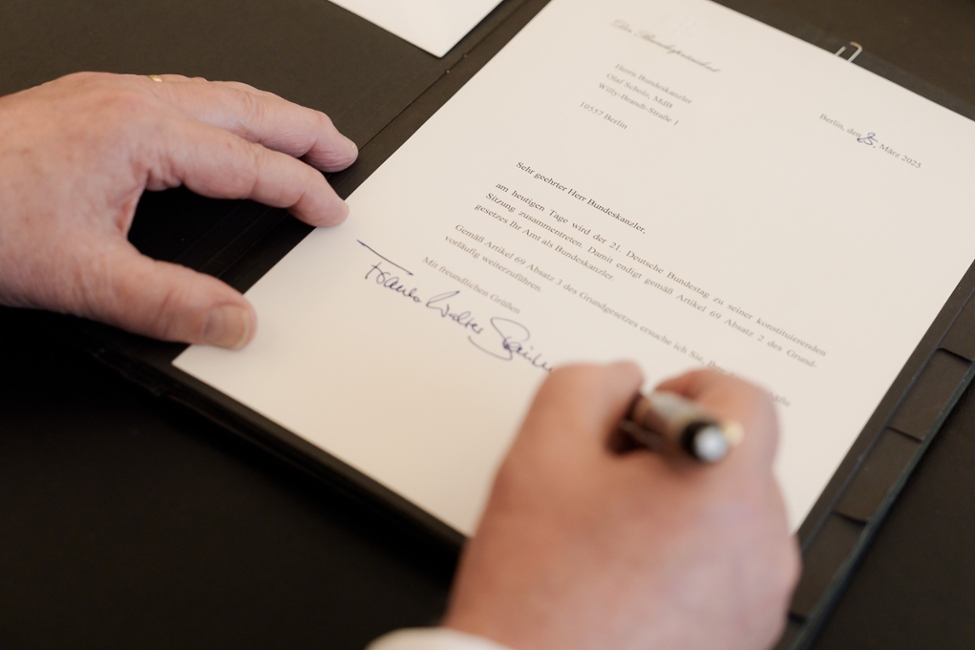 Der Bundespräsident
Herrn Bundeskanzler
Olaf Scholz, MdB
Willy-Brandt-Straße 1
10557 Berlin
Berlin, den 25. März 2025
Sehr geehrter Herr Bundeskanzler,
am heutigen Tage wird der 21. Deutsche Bundestag zu seiner konstituierenden
Sitzung zusammentreten. Damit endigt gemäß Artikel 69 Absatz 2 des Grund-
gesetzes Ihr Amt als Bundeskanzler.
Gemäß Artikel 69 Absatz 3 des Grundgesetzes ersuche ich Sie,
vorläufig weiterzuführen.
Mit freundlichen Grüßen
Frank-Walter